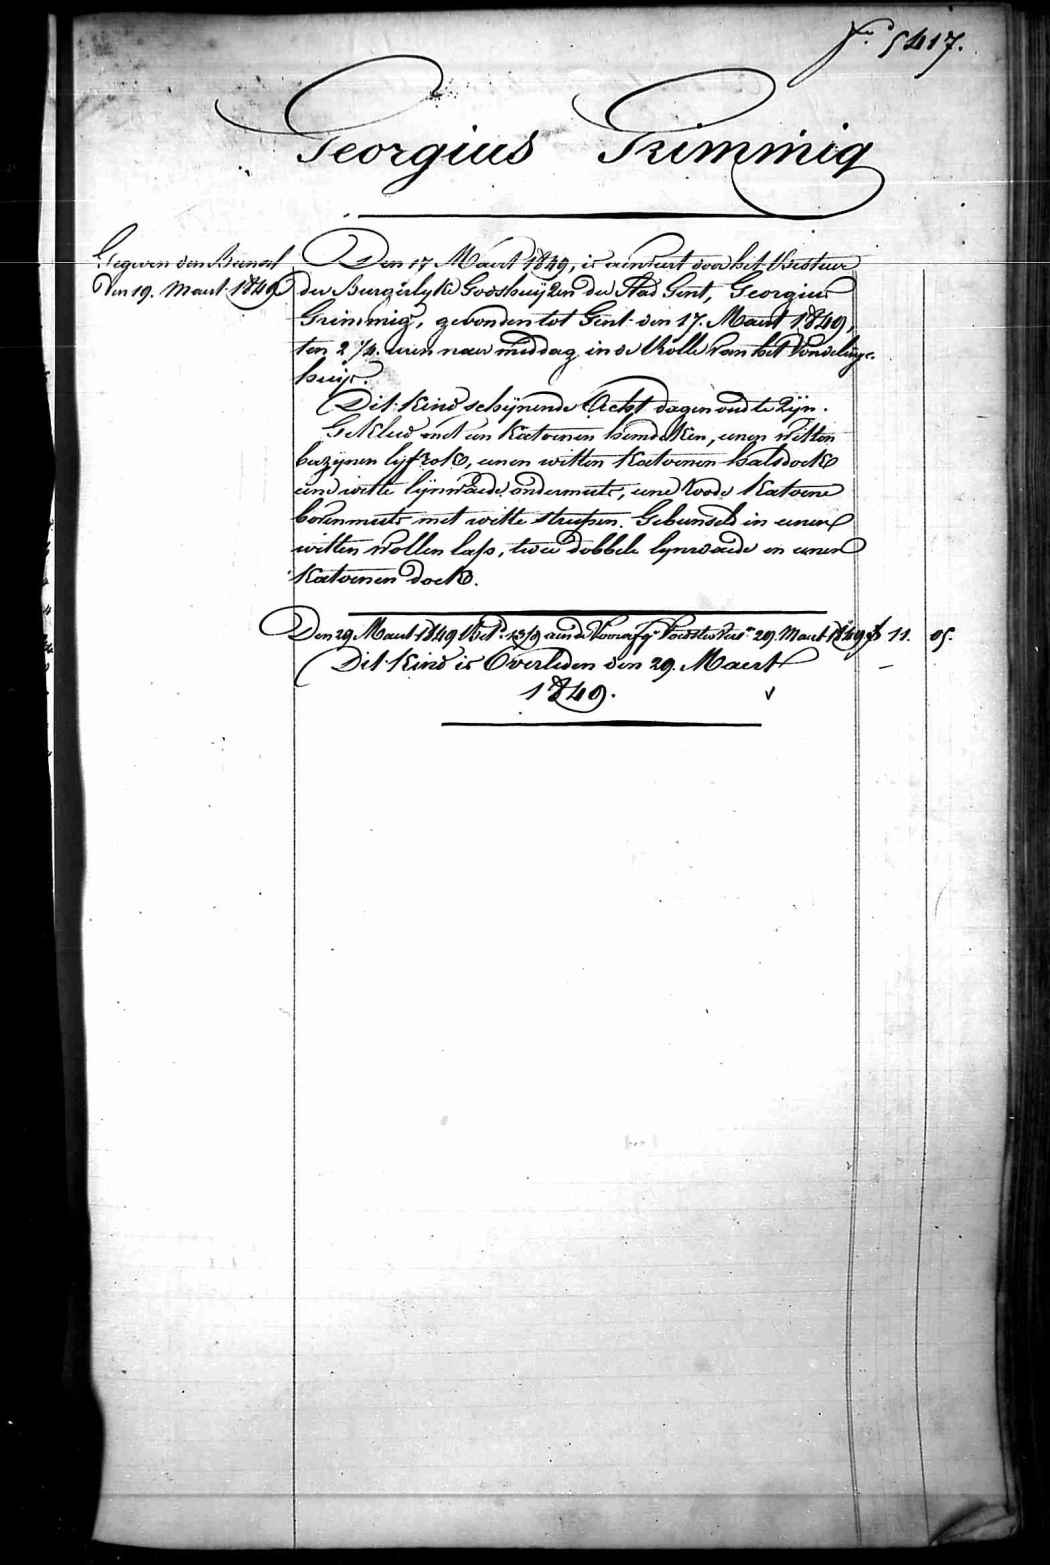 Fo. 5417.
Georgius Grimmig
Gegeven den
den 19. Maert 1849
Den 17 Maert 1849, is aenveert door het Bestuer
der Burgerlyke Godshuijzen der Stad Gent, Georgius
Grimmig, gevonden tot Gent den 17. Maert 1849,
ten 2 1/4 uren naer middag in de Rolle van het Vondelings-
huijs.
Dit Kind schijnende Acht dagen oud te Zijn.
Gekleed met een Katoenen hemdeken, eenen witten
bazijnen lijfrok, eenen witten Katoenen halsdoek
eene witte lijnwaede ondermuts, eene roode Katoene
bovenmuts met witte streepen. Gebunseld in eenen
witten wollen laps, twee dobbele lynwaede en eenen
Katoenen doek.
Den 29 Maert 1849 aen de Voedster 29. Maert 1849 11. 05.
Dit Kind is Overleden den 29. Maert
1849.